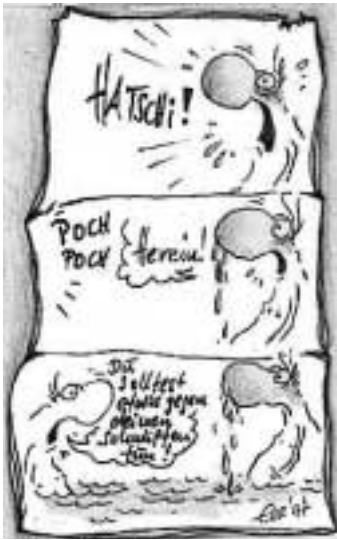 HATSCHi!
POCH
POCH
Herein!
Du
solltest
etwas gegen
deinen
Schnupfen
tun!